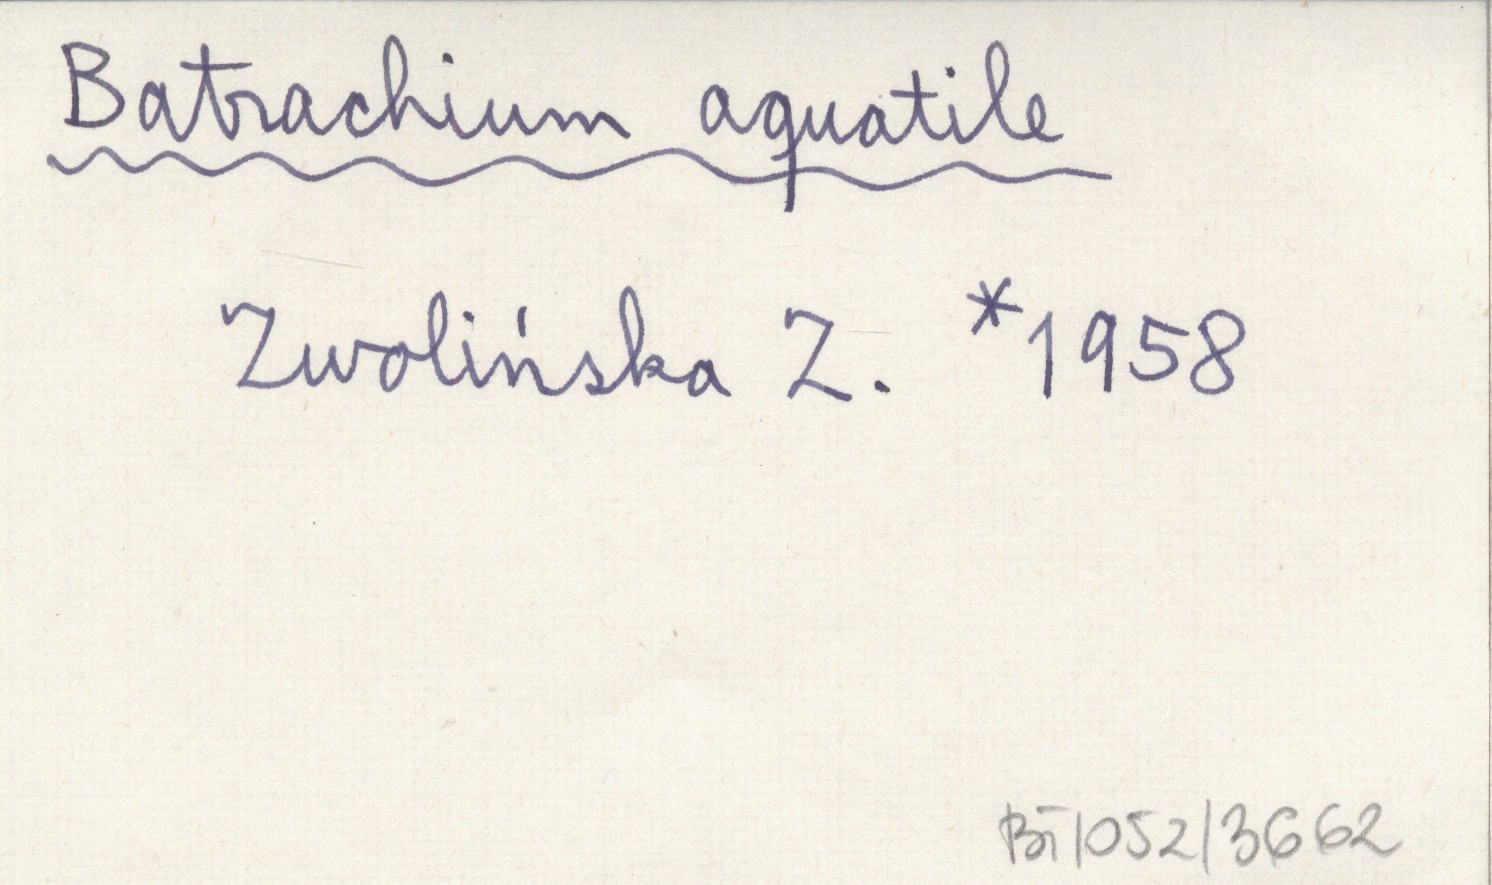 Batrachium aquatile
Zwolińska Z. *1958
BI/052/3662